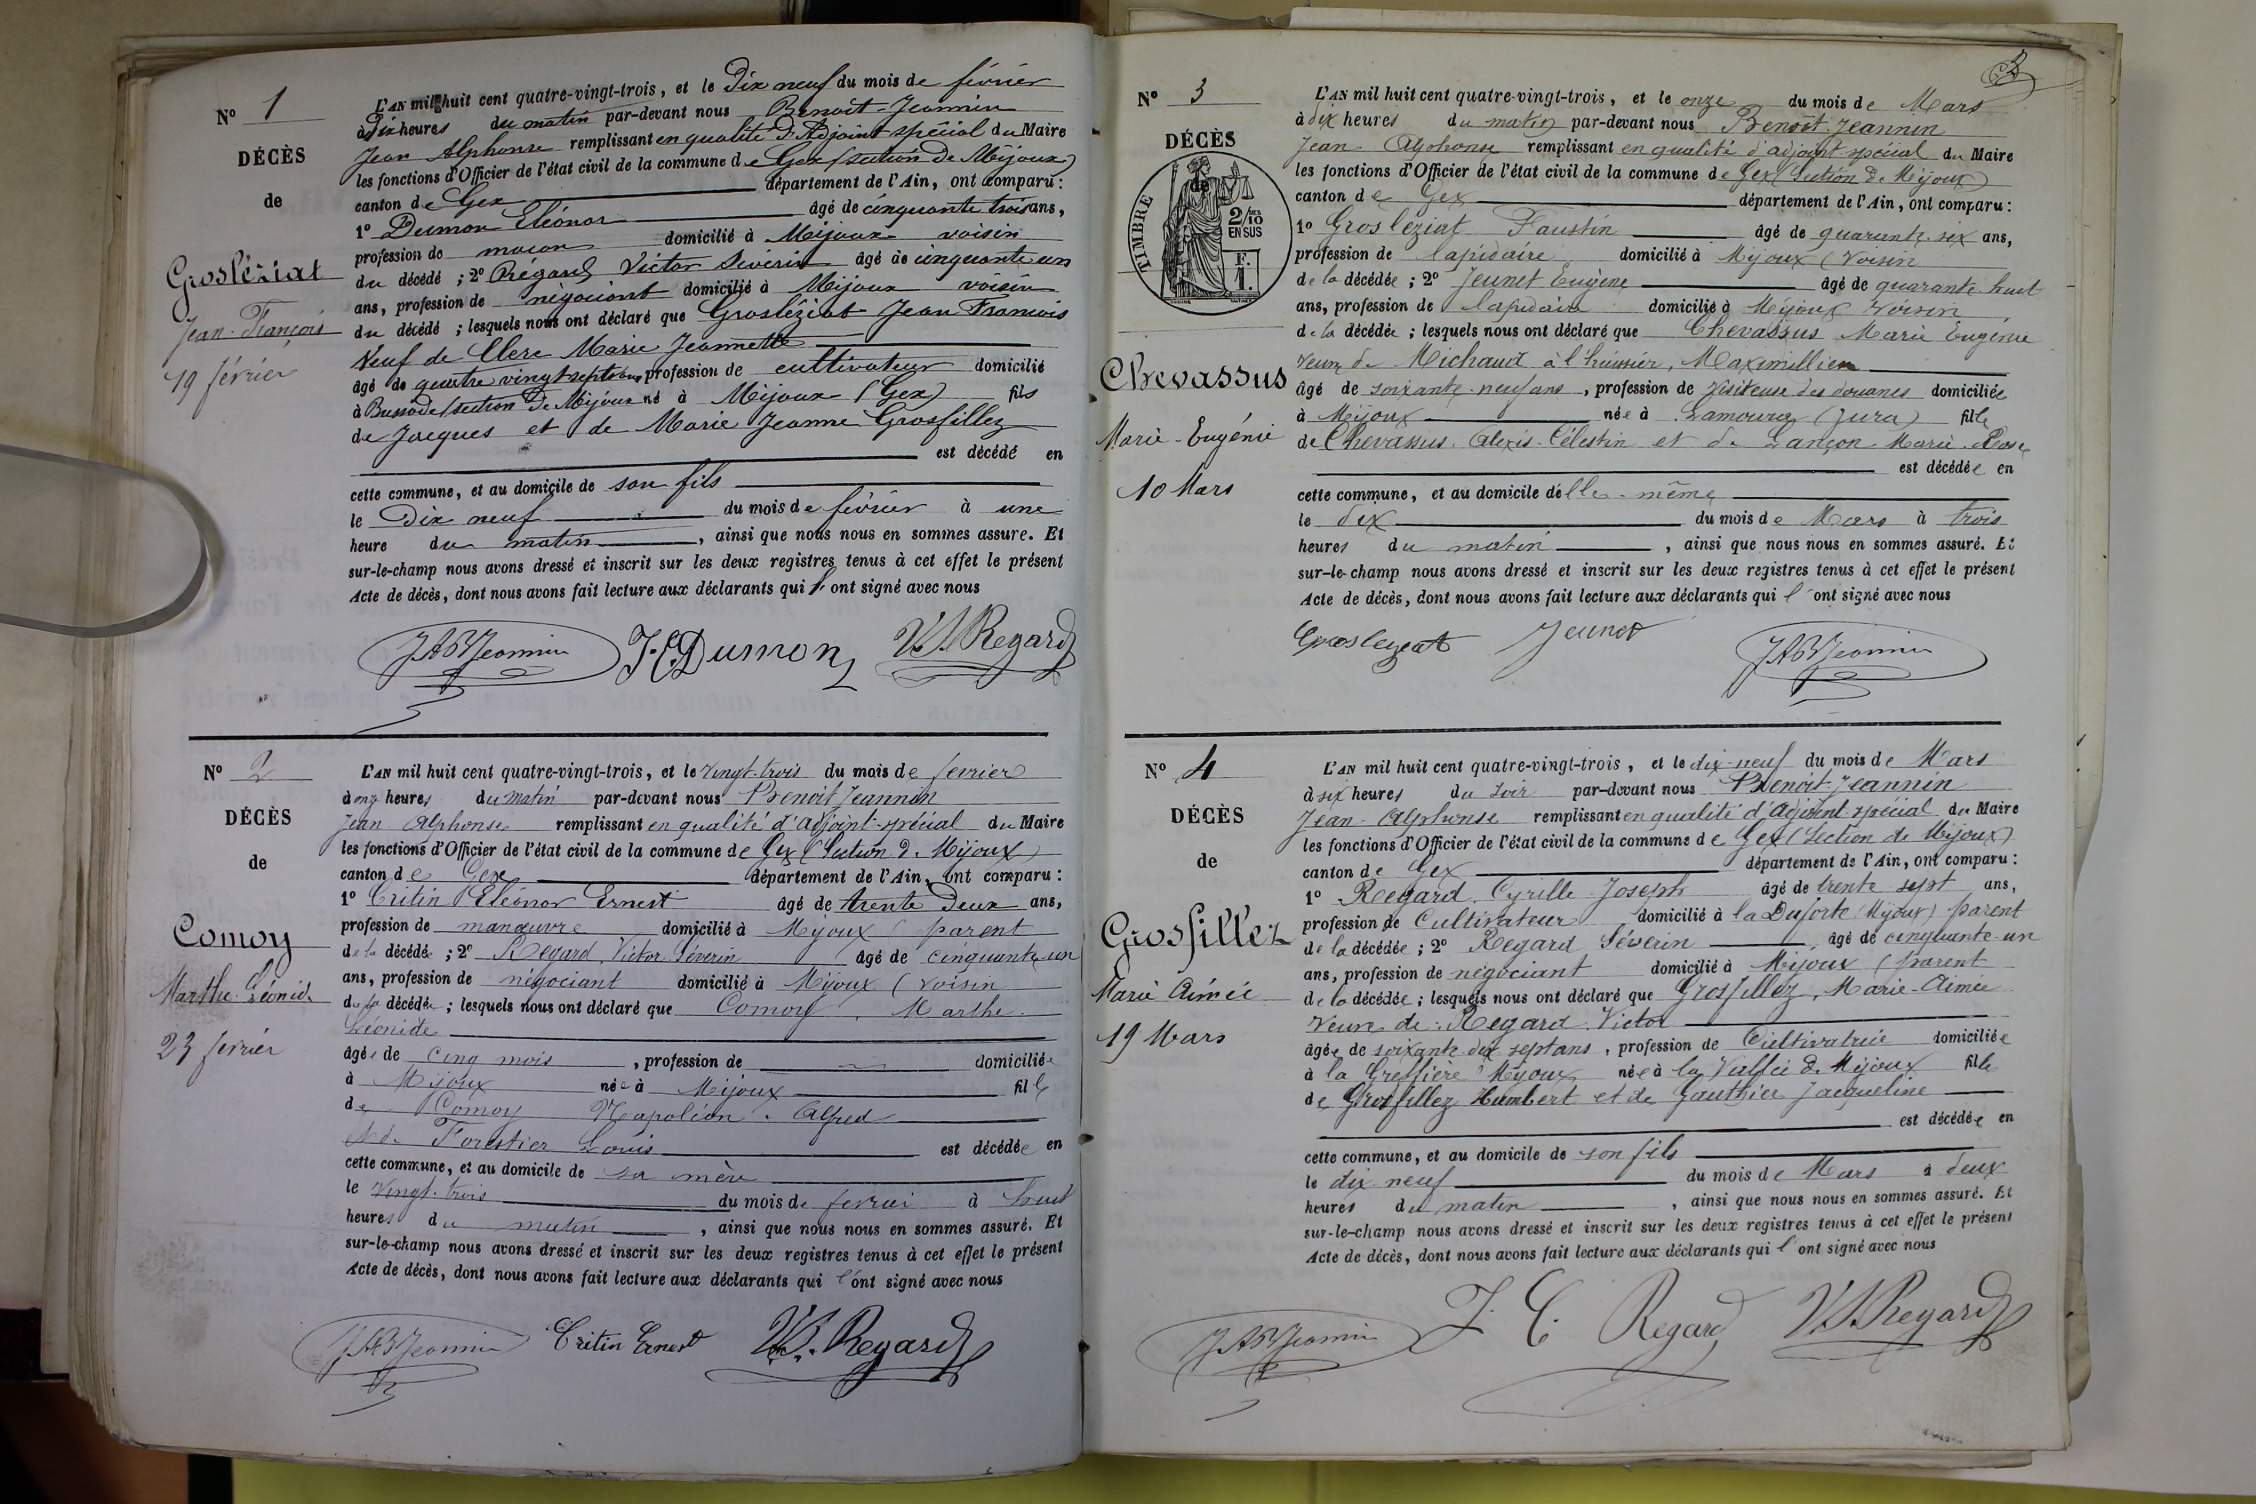 N° 1
DÉCÈS
de
Grosléziat
Jean-François
19 février
L'AN mil huit cent quatre-vingt-trois, et le Dix neuf du mois de février
à Dix heures du matin par-devant nous Benoît-Jeannin
Jean Alphonse remplissant en qualité d'Adjoint spécial du Maire
les fonctions d'Officier de l'état civil de la commune de Gex (section de Mijoux)
canton de Gex département de l'Ain, ont comparu :
1° Dumon Eléonor âgé de cinquante trois ans,
profession de maçon domicilié à Mijoux voisin
du décédé ; 2° Régard Victor Severin âgé de cinquante un
ans, profession de négociant domicilié à Mijoux voisin
du décédé ; lesquels nous ont déclaré que Grosléziat Jean François
Veuf de Clerc Marie Jeannette
âgé de quatre vingt sept ans profession de cultivateur domicilié
à (section de Mijoux né à Mijoux (Gex) fils
de Jacques et de Marie Jeanne Grosfillez
est décédé en
cette commune, et au domicile de son fils
le Dix neuf du mois de février à une
heure du matin, ainsi que nous nous en sommes assuré. Et
sur-le-champ nous avons dressé et inscrit sur les deux registres tenus à cet effet le présent
Acte de décès, dont nous avons fait lecture aux déclarants qui l'ont signé avec nous
JABJeannin J. E. Dumon V. S. Regard
N° 2
DÉCÈS
de
Comoy
Marthe Léonide
23 février
L'AN mil huit cent quatre-vingt-trois, et le vingt-trois du mois de février
à onze heures du matin par-devant nous Benoit Jeannin
Jean Alphonse remplissant en qualité d'adjoint-spécial du Maire
les fonctions d'Officier de l'état civil de la commune de Gex (Section de Mijoux)
canton de Gex département de l'Ain, ont comparu :
1° Critin Eléonor Ernest âgé de trente Deux ans,
profession de manœuvre domicilié à Mijoux (parent
de la décédée ; 2° Regard Victor Séverin âgé de cinquante-un
ans, profession de négociant domicilié à Mijoux (voisin
de la décédée ; lesquels nous ont déclaré que Comoy, Marthe
Léonide
âgée de cinq mois, profession de domiciliée
à Mijoux née à Mijoux fille
de Comoy Napoléon-Alfred
et de Forestier Louis
est décédée en
cette commune, et au domicile de sa mère
le vingt-trois du mois de ferrier à huit
heures du matin, ainsi que nous nous en sommes assuré. Et
sur-le-champ nous avons dressé et inscrit sur les deux registres tenus à cet effet le présent
Acte de décès, dont nous avons fait lecture aux déclarants qui l'ont signé avec nous
JABJeannin Critin Ernest V. S. Regard
2
N° 3
DÉCÈS
de
TIMBRE
2/10
EN SUS
F.
1.
Chevassus
Marie-Eugénie
10 Mars
L'AN mil huit cent quatre-vingt-trois, et le onze du mois de Mars
à dix heures du matin par-devant nous Benoit-Jeannin
Jean Alphonse remplissant en qualité d'adjoint-spécial du Maire
les fonctions d'Officier de l'état civil de la commune de Gex (Section de Mijoux)
canton de Gex département de l'Ain, ont comparu :
1° Grosléziat Faustin âgé de quarante-six ans,
profession de lapidaire domicilié à Mijoux (Voisin
de la décédée ; 2° Jeunet Eugène âgé de quarante-huit
ans, profession de lapidaire domicilié à Mijoux Voisin
de la décédée ; lesquels nous ont déclaré que Chevassus Marie Eugénie
veuve de Michaud à l'huissier, Maximillien
âgé de soixante-neuf ans, profession de visiteuse des douanes domiciliée
à Mijoux née à Lamoura (Jura) fille
de Chevassus Alexis-Célestin et de Lançon-Marie-Rose
est décédée en
cette commune, et au domicile d'elle-même
le dix du mois de Mars à trois
heures du matin, ainsi que nous nous en sommes assuré. Et
sur-le-champ nous avons dressé et inscrit sur les deux registres tenus à cet effet le présent
Acte de décès, dont nous avons fait lecture aux déclarants qui l'ont signé avec nous
Groslezeat Jeunet JABJeannin
N° 4
DÉCÈS
de
Grosfillez
Marie Aimée
19 Mars
L'AN mil huit cent quatre-vingt-trois, et le dix-neuf du mois de Mars
à six heures du soir par-devant nous Benoit-Jeannin
Jean-Alphonse remplissant en qualité d'adjoint spécial du Maire
les fonctions d'Officier de l'état civil de la commune de Gex (Section de Mijoux)
canton de Gex département de l'Ain, ont comparu :
1° Regard Cyrille Joseph âgé de trente sept ans,
profession de Cultivateur domicilié à la Duforte (Mijoux) parent
de la décédée ; 2° Regard Séverin, âgé de cinquante-un
ans, profession de négociant domicilié à Mijoux (parent
de la décédée ; lesquels nous ont déclaré que Grosfillez, Marie-Aimée
Veuve de Regard Victor
âgée de soixante-dix sept ans, profession de Cultivatrice domiciliée
à la Greffière Mijoux née à la Vallée de Mijoux fille
de Grosfillez Humbert et de Gauthier Jacqueline
est décédée en
cette commune, et au domicile de son fils
le dix neuf du mois de Mars à deux
heures du matin, ainsi que nous nous en sommes assuré. Et
sur-le-champ nous avons dressé et inscrit sur les deux registres tenus à cet effet le présent
Acte de décès, dont nous avons fait lecture aux déclarants qui l'ont signé avec nous
JABJeannin J. C. Regard V. S. Regard